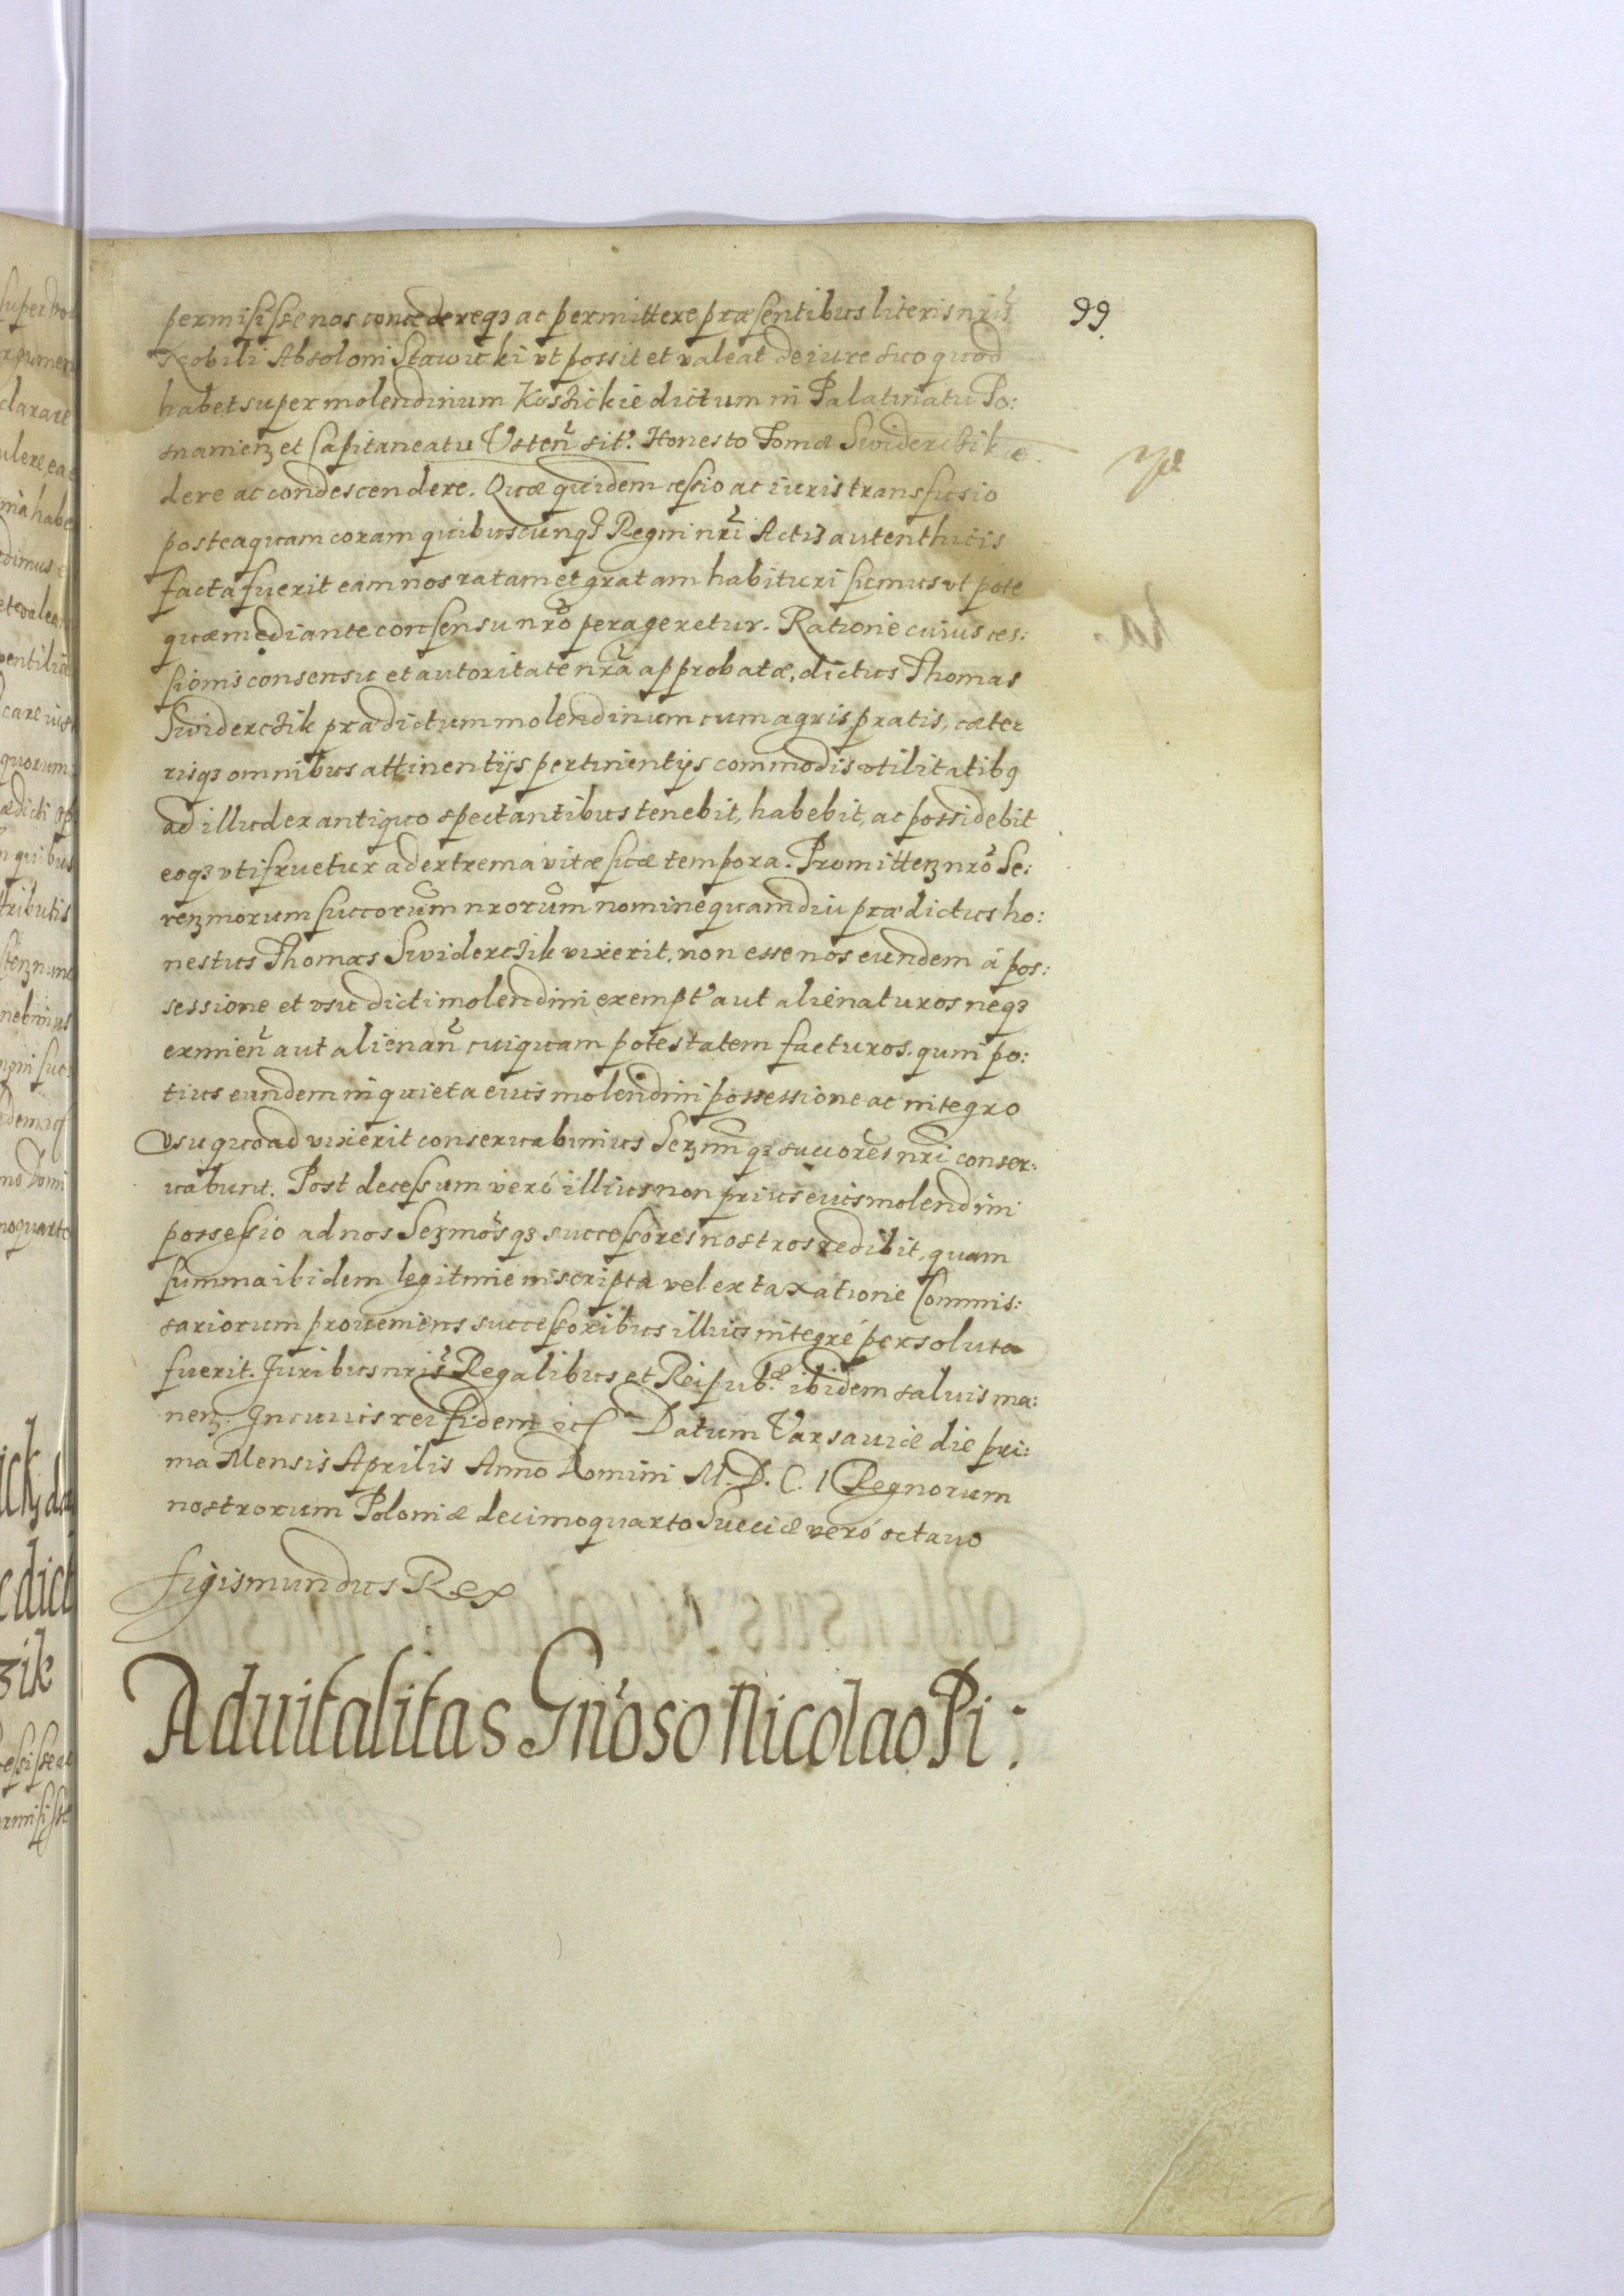 99
permisisse nos concedereqȝ ac permittere præsentibus literis nris̃
Nobili Absoloni Stawicki vt possit et valeat de iure suo quod
habet super molendinum Koszickie dictum in Palatinatu Po:
snamienȝ et Capitaneatu Vsten̄ sit? Honesto Tomæ Swiderczik ce
dere ac condescendere. Quæ quidem cessio ac iuris transfusio
posteaquam coram quibuscunqȝ Regni nri̅ Actis autenthicis
facta fuerit eam nos ratam et gratam habituri sumus vt pote
quæ mediante consensu nr̃o perageretur. Ratione cuius ces:
sionis consensu et autoritate nrã approbatæ, dictus Thomas
Swiderczik prædictum molendinum cum agris pratis, cæter
risqȝ omnibus attinentijs pertinentijs commodis vtilitatibȝ
ad illud ex antiquo spectantibus tenebit, habebit, ac possidebit
eoqȝ vtifruetur ad extrema vitæ suæ tempora. Promittenȝ nrõ Se:
renȝmorum succorum̃ nrorum̃ nomine quamdiu prædictus ho:
nestus Thomas Swiderczik vixerit, non esse nos eundem à pos:
sessione et vsu dicti molendini exempt' aut alienaturos neqȝ
eximen̄ aut alienan̄ cuiquam potestatem facturos. quin po:
tius eundem in quieta eius molendini possessione ac integro
vsu quoad vixerit conseruabimus Serȝmiqȝ succores̃ nrĩ conser:
uabunt. Post decessum verò illius non prius eius molendini
possessio ad nos Serȝmos̃qȝ successores nostros redibit, quam
summa ibidem legitime inscripta vel ex taxatione Commis:
sariorum proueniens successoribus illius integrè persoluta
fuerit. Juribus nris̃ Regalibus et Reipub.æ ibidem saluis ma:
nenȝ. In cuius rei fidem etc Datum Varsauiæ die pri:
ma Mensis Aprilis Anno Domini M.D.C.I Regnorum
nostrorum Poloniæ decimoquarto Sueciæ verò octauo
Sigismundus Rex
Aduitalitas Gn̄oso Nicolao Pi: